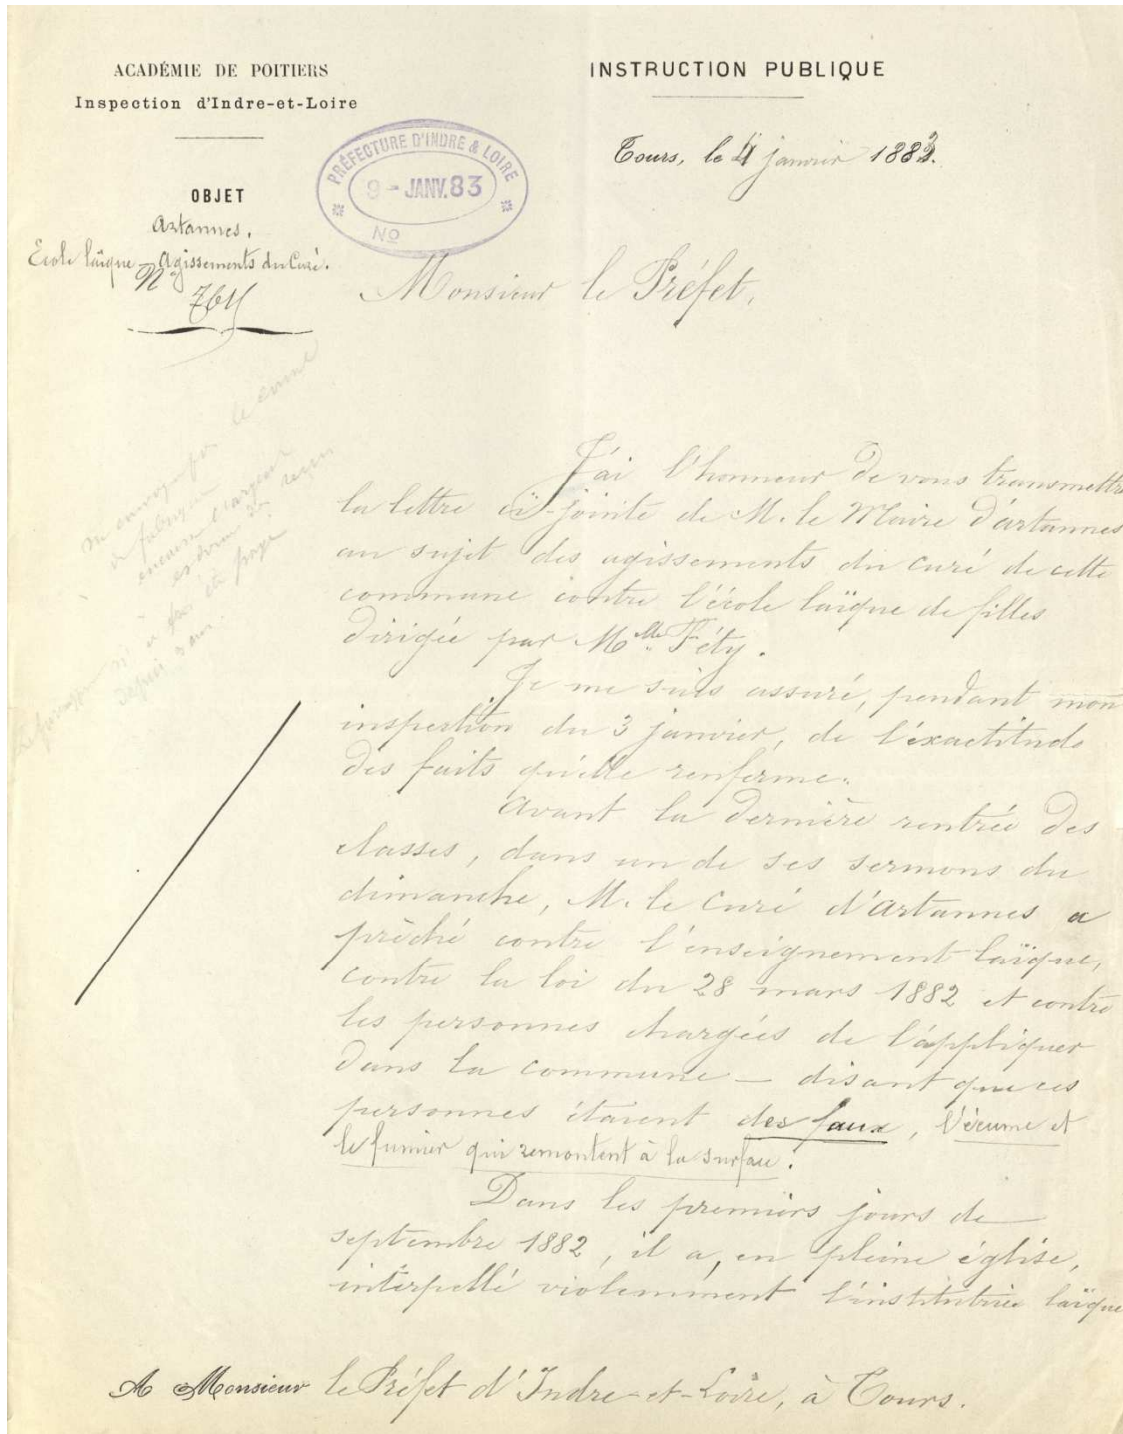 ACADÉMIE DE POITIERS
Inspection d'Indre-et-Loire
INSTRUCTION PUBLIQUE
PRÉFECTURE D'INDRE & LOIRE
9 - JANV. 83
No
Tours, le 4 janvier 1883.
OBJET
Artannes.
Ecole laïque - Agissements du Curé.
No
Monsieur le Préfet,
J'ai l'honneur de vous transmettre
la lettre ci-jointe de M. le Maire d'Artannes
au sujet des agissements du curé de cette
commune contre l'école laïque de filles
dirigée par Mlle Féty.
Je me suis assuré, pendant mon
inspection du 3 janvier, de l'exactitude
des faits qu'elle renferme.
Avant la dernière rentrée des
classes, dans un de ses sermons du
dimanche, M. le Curé d'Artannes a
prêché contre l'enseignement laïque,
contre la loi du 28 mars 1882 et contre
les personnes chargées de l'appliquer
dans la commune — disant que ces
personnes étaient des faux, l'écume et
le fumier qui remontent à la surface.
Dans les premiers jours de
septembre 1882, il a, en pleine église,
interpellé violemment l'institutrice laïque
A Monsieur le Préfet d'Indre-et-Loire, à Tours.